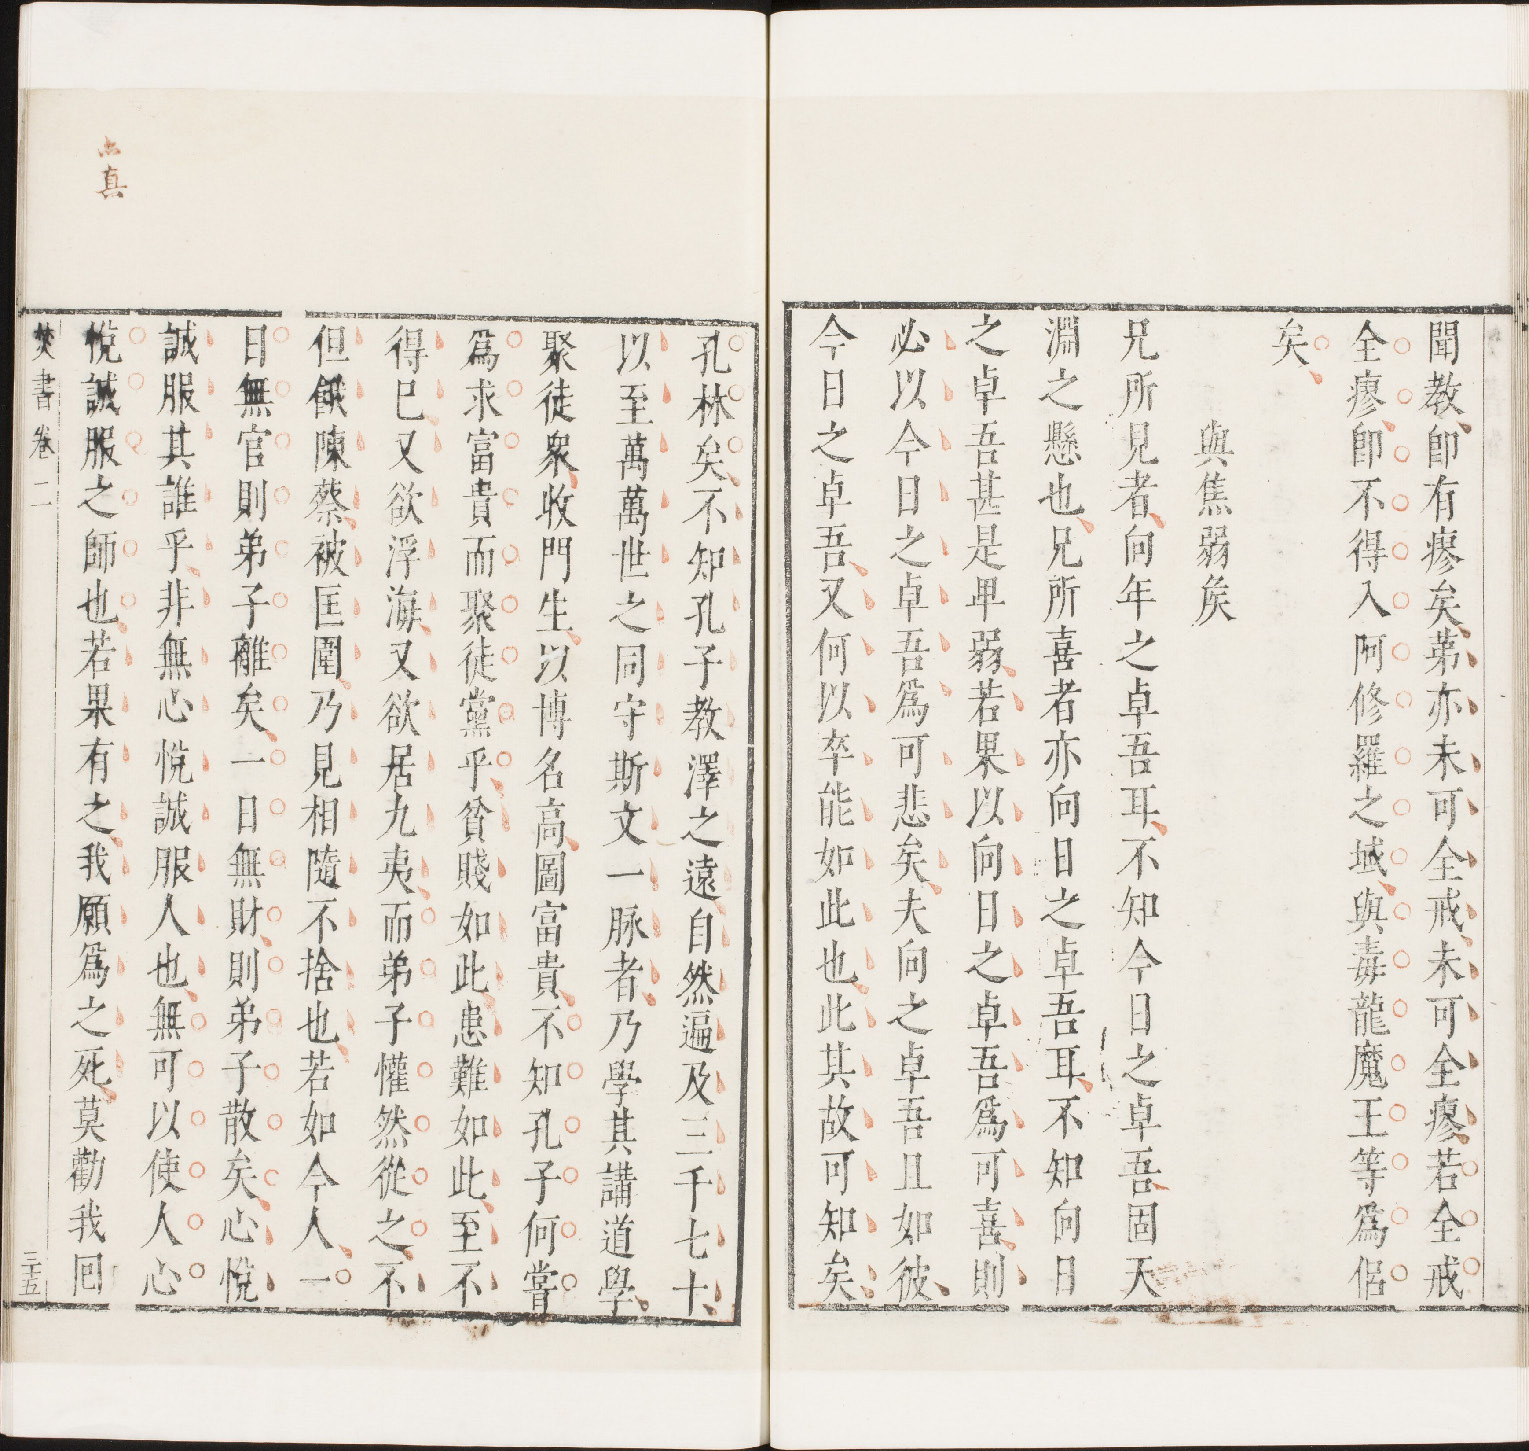 聞教、卽有瘳矣、苐亦未可全戒、未可全瘳、若全戒
全瘳、卽不得入阿修羅之域、與毒龍魔王等爲侶
矣、
與焦弱矦
兄所見者、向年之卓吾耳、不知今日之卓吾固天
淵之懸也、兄所喜者亦向日之卓吾耳、不知向日
之卓吾甚是卑弱、若果以向日之卓吾爲可喜、則
必以今日之卓吾爲可悲矣、夫向之卓吾且如彼、
今日之卓吾、又何以卒能如此也、此其故可知矣、
孔林矣、不知孔子教澤之遠、自然遍及三千七十、
以至萬萬世之同守斯文一脉者、乃學其講道學、
聚徒衆、收門生、以博名高、圖富貴、不知孔子何嘗
爲求富貴而聚徒黨乎、貧賤如此、患難如此、至不
得已、又欲浮海、又欲居九夷、而弟子懽然從之、不
但餓陳蔡、被匡圍、乃見相隨不捨也、若如今人、一
日無官則弟子離矣、一日無財、則弟子散矣、心悅
誠服其誰乎、非無心悅誠服人也、無可以使人心
悅誠服之師也、若果有之、我願爲之死、莫勸我回
焚書 卷二 三十五
真